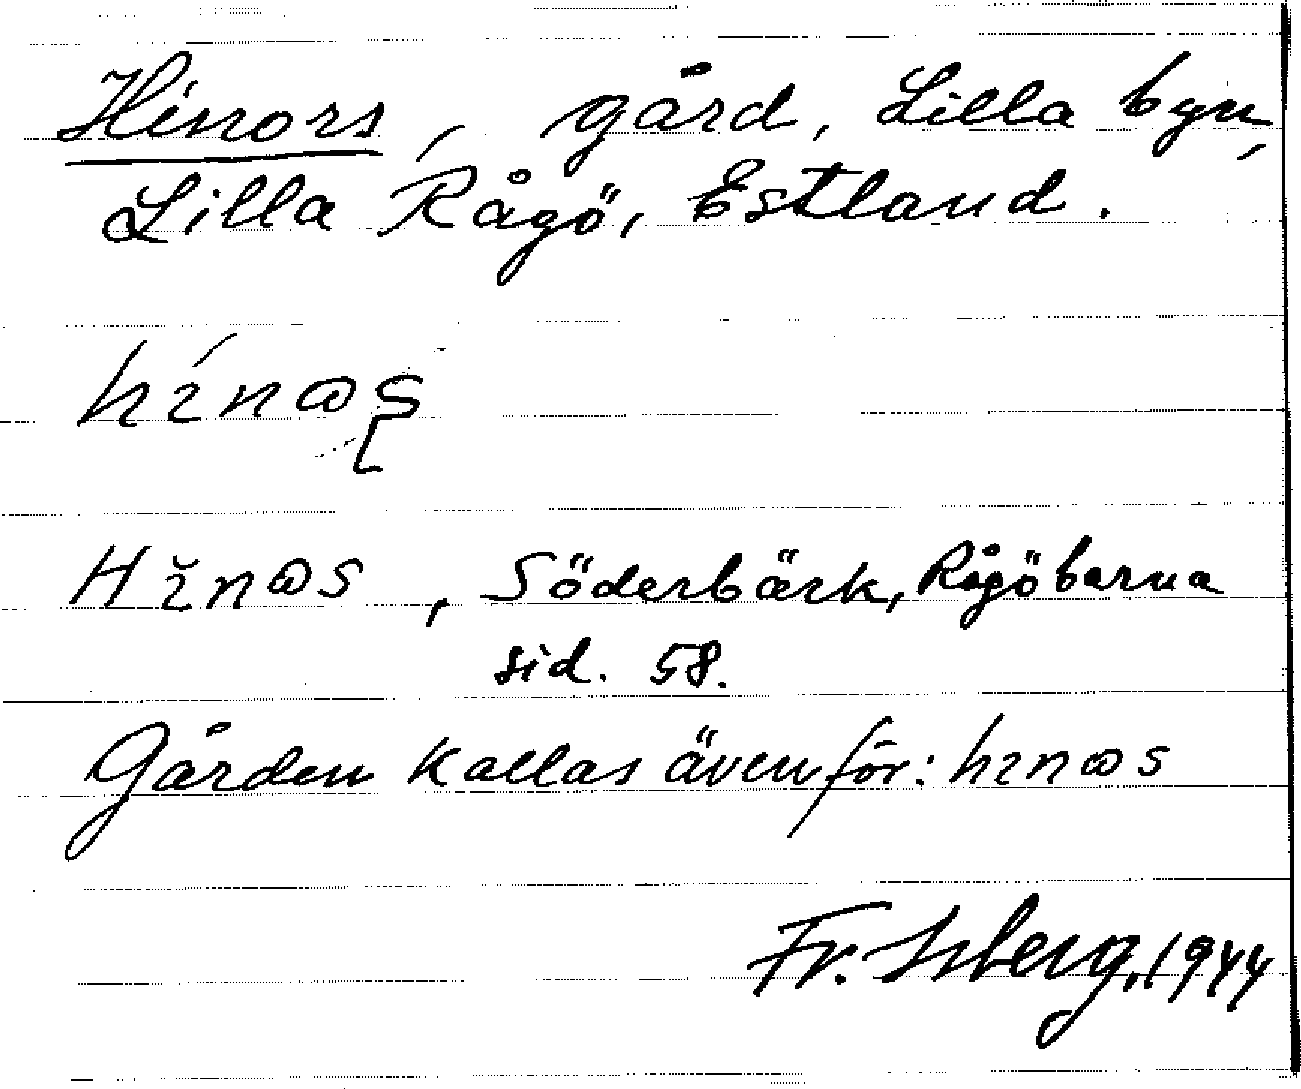 Hinors, gård, Lilla byn,
Lilla Rågö, Estland.
hɩ́nꝏȿ
Hɩ̆nꝏs, Söderbärk, Rågöbarna
sid. 58.
Gården kallas även för: hɩnꝏs
Fr. Isberg, 1944